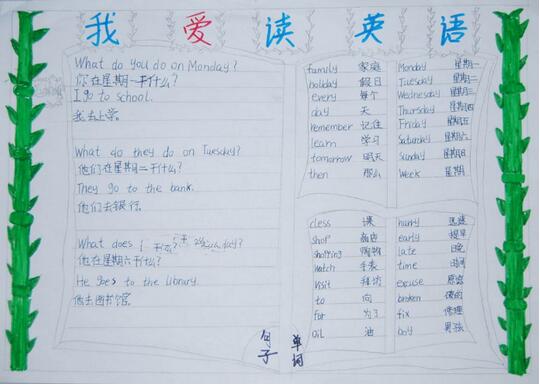 我爱读英语
What do you do on Monday?
你在星期一干什么?
I go to school.
我去上学.
What do they do on Tuesday?
他们在星期二干什么?
They go to the bank.
他们去银行.
What does
day?
他在星期六干什么?
He goes to the library.
他去图书馆
句子
family 家庭
holiday 假日
every 每个
day 天
remember 记住
learn 学习
tomorrow 明天
then 那么
Monday 星期一
Tuesday 星期二
Wednesday 星期三
Thursday 星期四
Friday 星期五
Saturday 星期六
Sunday 星期日
Week 星期
class 课
shop 商店
shopping 购物
watch 手表
visit 拜访
to 向
for 为了
oil 油
hurry 迅速
early 提早
late 晚
time 时间
excuse 原谅
broken 坏的
fix 修理
boy 男孩
单词